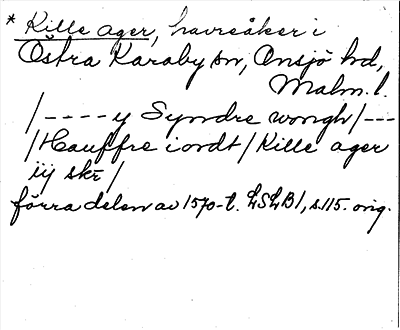 * Kille ager, havreåker i
Östra Karaby sn, Onsjö hd,
Malm. l.
/ - - - - y Syndre wongh / - - -
/ Hauffre iordt / Kille ager
iij skr /
förra delen av 1570-t. LSLB 1, s. 115. orig.